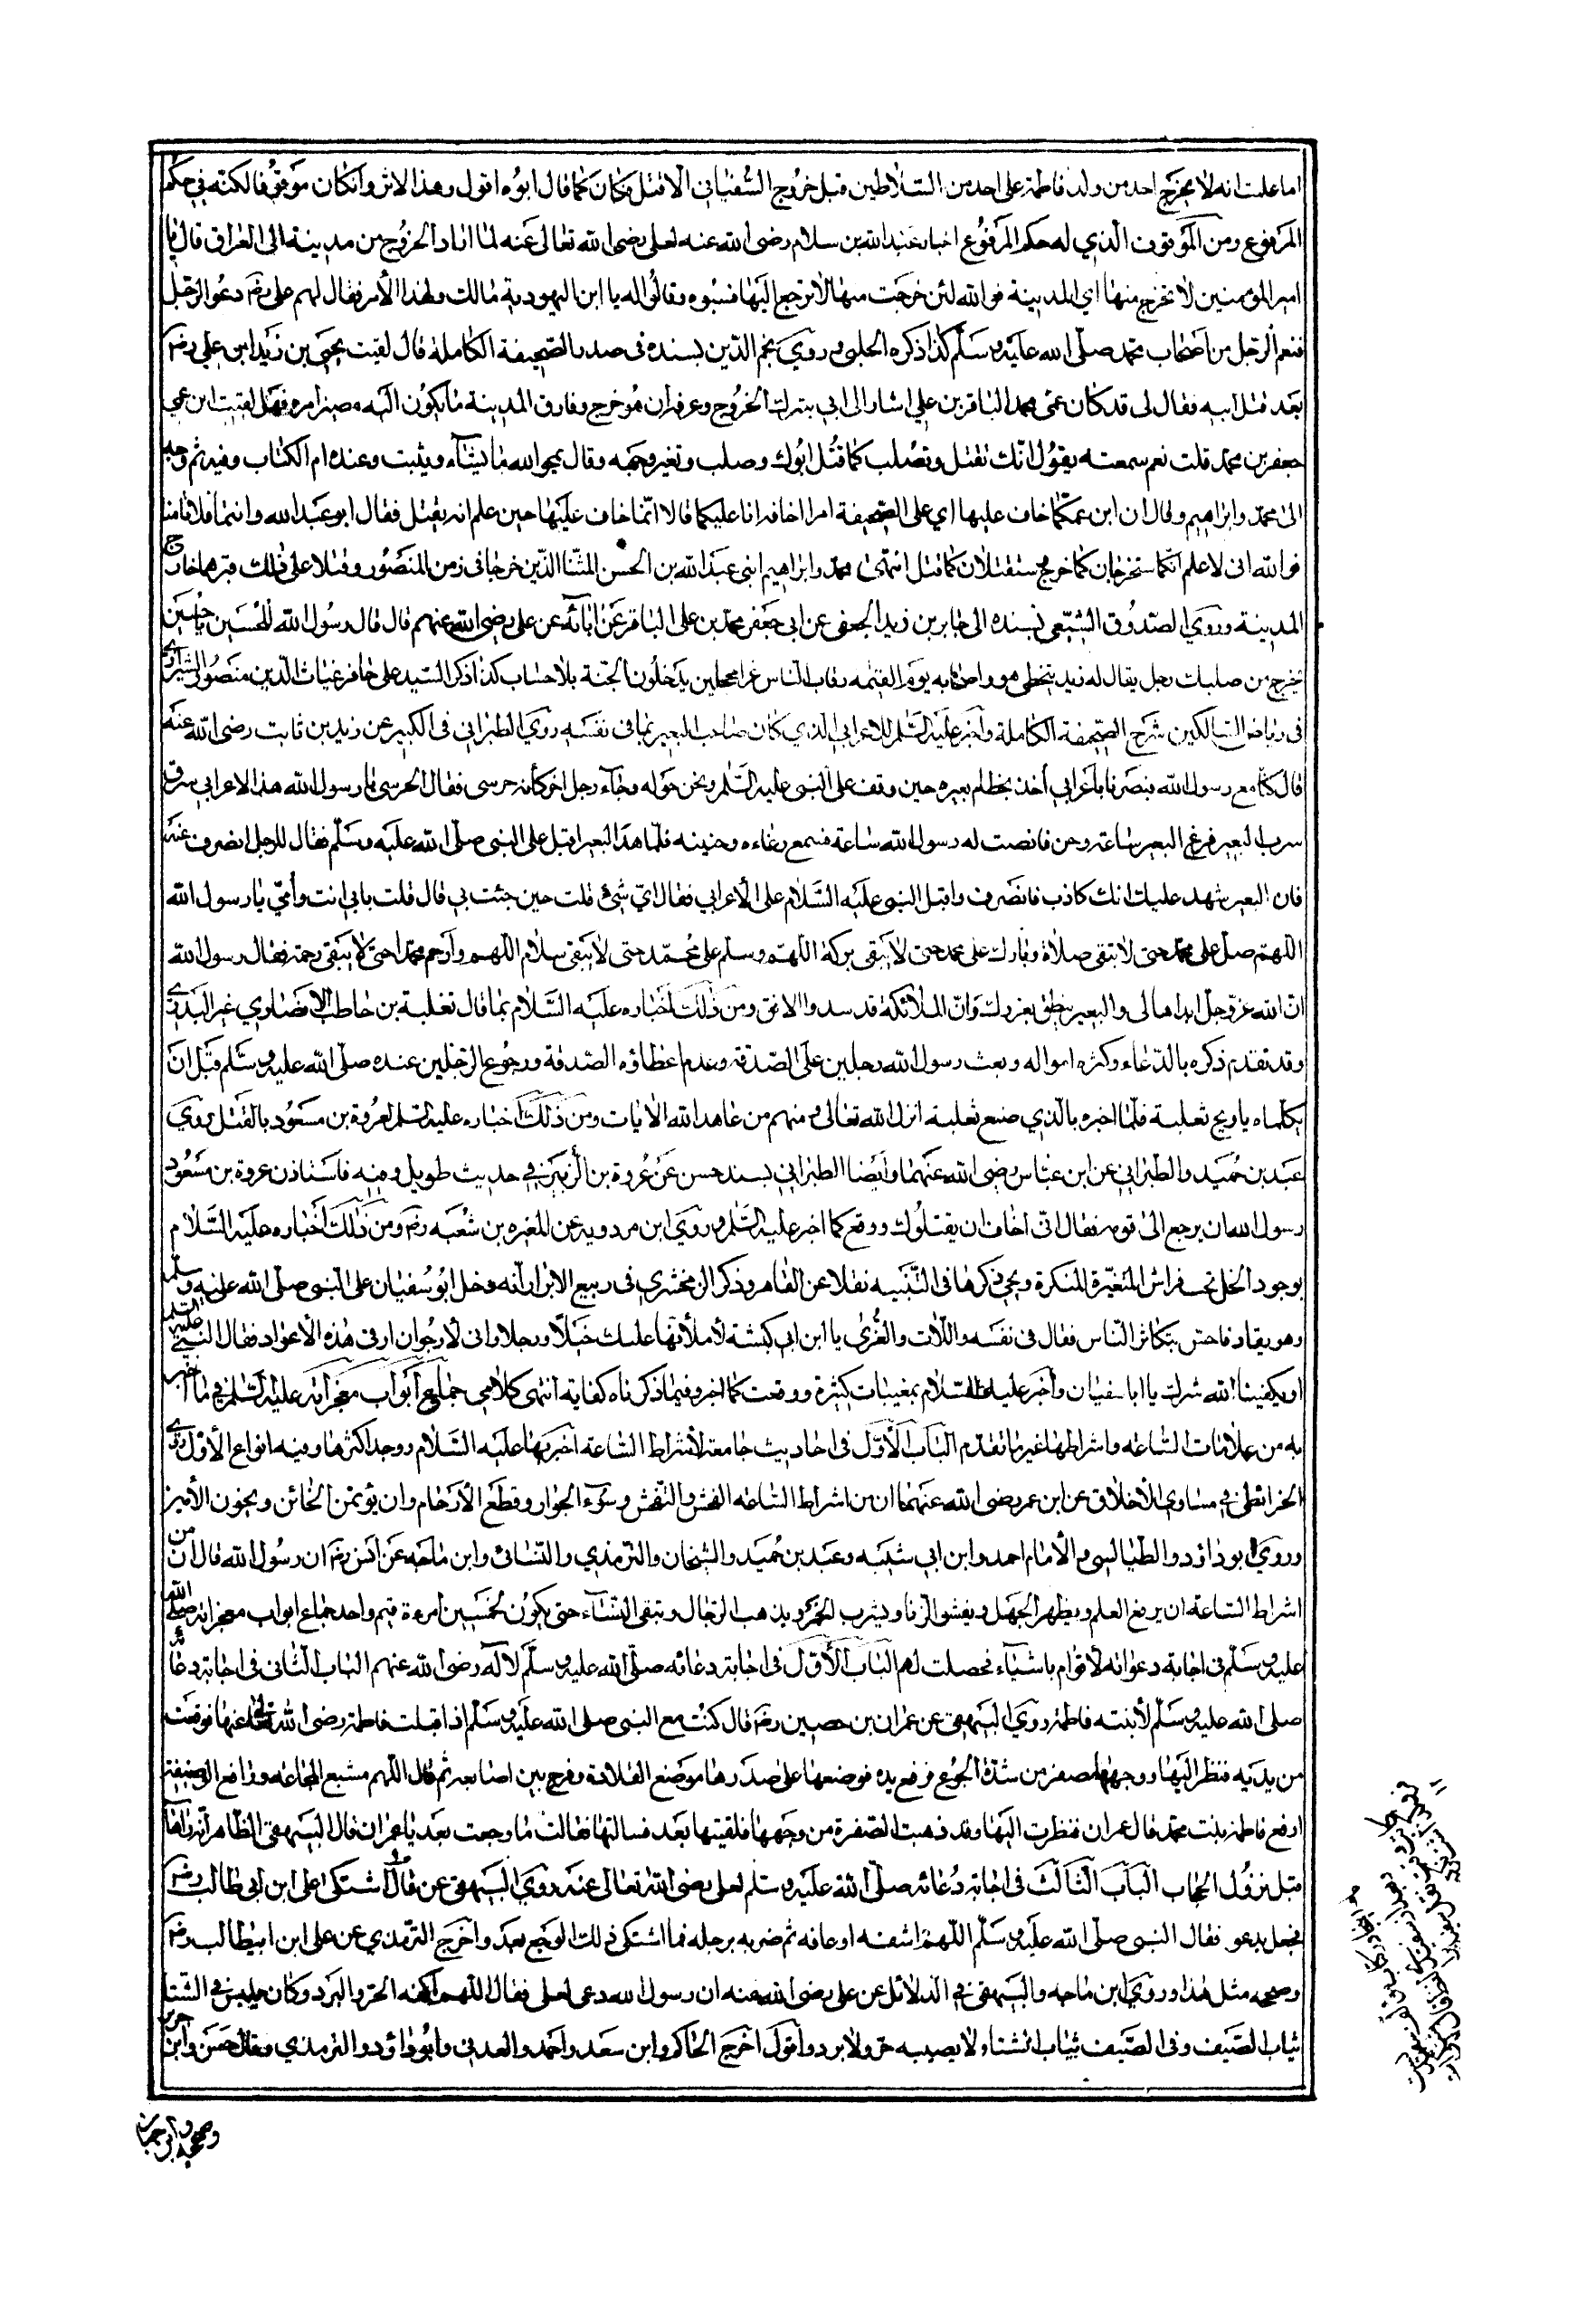 اما علمت انه لا يخرج احد من ولد فاطمة على احد من السلاطين قبل خروج السفياني الا قتل فكان كما قال ابوه اقول وهذا الاثر وانكان موقوفا لكنه في حكم
المرفوع ومن الموقوف الذي له حكم المرفوع اخبار عبد الله بن سلام رضى الله عنه لعلى رضى الله تعالى عنه لما اراد الخروج من مدينة الى العراق قال يا
امير المؤمنين لا تخرج منها اي المدينة فو الله لئن خرجت منها لا ترجع اليها فسبوه وقالوا له يا ابن اليهودية مالك ولهذا الأمر فقال لهم على رضه دعوا الرجل
فنعم الرجل من اصحاب محمد صلى الله عليه وسلم كذا ذكره الحلبى وروي نجم الدين بسنده فى صدر الصحيفة الكاملة قال لقيت يحيى بن زيد ابن علي رضه
بعد قتل ابيه فقال لى قد كان عمى محمد الباقر بن علي اشار الى ابي بترك الخروج وعرفه ان هو خرج وفارق المدينة ما يكون اليه مصير امره فهل لقيت ابن عمي
جعفر بن محمد قلت نعم سمعته يقول انك تقتل وتصلب كما قتل ابوك وصلب وتغير وجهه وقال يمحو الله ما يشاء ويثبت وعنده ام الكتاب وفيه ثم وجه
الى محمد وابراهيم وقال ان ابن عمكما خاف عليها اي على الصحيفة امرا اخافه انا عليكما قالا انما خاف عليها حين علم انه يقتل فقال ابو عبد الله وانتما فلا تامنا
فو الله انى لاعلم انكما ستخرجان كما خرج ستقتلان كما قتل انتهى محمد وابراهيم ابنى عبد الله بن الحسن المثنا الذين خرجا فى زمن المنصور وقتلا على ذلك قبرهما خارج
المدينة وروي الصدوق الشيعى بسنده الى جابر بن زيد الجعفى عن ابى جعفر محمد بن على الباقر عن ابائه عن على رضى الله عنهم قال قال رسول الله للحسين يا حسين
يخرج من صلبك رجل يقال له زيد يتخطى هو واصحابه يوم القيمه رقاب الناس غرا محجلين يدخلون الجنة بلا حساب كذا ذكر السيد على خا فر غياث الدين منصور الشيرازي
فى رياض السالكين شرح الصحيفة الكاملة واخبر عليه السلم للاعرابي الذي كان صاحب البعير بما فى نفسه روي الطبرانى فى الكبير عن زيد بن ثابت رضى الله عنه
قال كنا مع رسول الله فبصرنا بأعرابي أخذ بخطام بعيره حين وقف على النبى عليه السلم ونحن حوله وجاء رجل اخر كأنه حرسى فقال الحرسى يا رسول الله هذا الاعرابي سرق
سرب البعير فرغى البعير ساعة وحن فانصت له رسول الله ساعة فسمع رغاءه وحنينه فلما هدا البعير اقبل على النبى صلى الله عليه وسلم فقال للرجل انصرف عنه
فان البعير شهد عليك انك كاذب فانصرف واقبل النبى عليه السلام على الأعرابي فقال اي شئ قلت حين جئت بي قال قلت بابي انت وأمي يا رسول الله
اللهم صل على محمد حتى لا تبقى صلاة وبارك على محمد حتى لا تبقى بركة اللهم وسلم على محمد حتى لا يبقى سلام اللهم وارحم محمدا حتى لا يبقى رحمة فقال رسول الله
ان الله عز وجل ابداها لى والبعير ينطق بعزرك وان الملائكة قد سدوا الافق ومن ذلك اخباره عليه السلام بما قال ثعلبة بن حاطب الانصاوي غير البدري
وقد تقدم ذكره بالدعاء وكثره امواله وبعث رسول الله رجلين على الصدقة وعدم اعطاؤه الصدقة ورجوع الرجلين عنده صلى الله عليه وسلم قبل ان
يكلماه يا ويح ثعلبة فلما اخبره بالذي صنع ثعلبة انزل الله تعالى ومنهم من عاهد الله الايات ومن ذلك اخباره عليه السلم لعروة بن مسعود بالقتل روي
عبد بن حميد والطبرانى عن ابن عباس رضى الله عنهما وأيضا الطبراني بسند حسن عن عروة بن الزبير فى حديث طويل وفيه فاستاذن عروة بن مسعود
رسول الله ان يرجع الى قومه فقال انى اخاف ان يقتلوك ووقع كما اخبر عليه السلم وروي ابن مردويه عن المغيره بن شعبه رضه ومن ذلك اخباره عليه السلام
بوجود الخل تحت فراش المتغيرة المنكرة ويجئ ذكرها فى التنبيه نقلا عن القاهر وذكر الزمخشري فى ربيع الابرار انه دخل ابو سفيان على النبى صلى الله عليه وسلم
وهو يقاد فاحس بتكاثر الناس فقال فى نفسه واللات والعزى يا ابن ابى كبشة لأملأنها عليك خيلا ورجلا وانى لأرجو ان ارقى هذه الاعواد فقال النبى عليه السلم
او يكفينا الله شرك يا ابا سفيان واخبر عليه السلام بمغيبات كثيرة ووقعت كما اخبر وفيما ذكرناه كفاية انتهى كلامى جماع أبواب معجزاته عليه السلم فى ما اخبر
به من علامات الساعه واشراطها غير ما تقدم الباب الأول فى احاديث جامعة لأشراط الساعة اخبر بها عليه السلام ووجد اكثرها وفيه انواع الأول روي
الخرائطى فى مساوي الأخلاق عن ابن عمر رضى الله عنهما ان من اشراط الساعه الفحش والتفحش وسوء الجوار وقطع الأرحام وان يؤتمن الخائن ويخون الأمير
وروي ابو داؤد والطيالسى والأمام احمد وابن ابى شيبه وعبد بن حميد والشيخان والترمذي والنسائ وابن ماجه عن انس رضه ان رسول الله قال ان من
اشراط الساعة ان يرفع العلم ويظهر الجهل ويفشو الزنا ويشرب الخمر ويذهب الرجال وتبقى النساء حتى يكون لخمسين امرءة قيم واحد جماع ابواب معجزاته صلى الله
عليه وسلم فى اجابة دعواته لأقوام باشياء فحصلت لهم الباب الأول فى اجابة دعائه صلى الله عليه وسلم لاله رضى الله عنهم الباب الثانى فى اجابة دعائه
صلى الله عليه وسلم لأبنته فاطمة روي البيهقى عن عمران بن حصين رضه قال كنت مع النبى صلى الله عليه وسلم اذ اقبلت فاطمة رضى الله تعالى عنها فوقفت
من يديه فنظر اليها ووجهها مصفر من شدة الجوع فرفع يده فوضعها على صدرها موضع القلادة وفرج بين اصابعه ثم قال اللهم مشبع الجاعه ورافع الوضيعة
ارفع فاطمة بنت محمد قال عمران فنظرت اليها وقد ذهبت الصفرة من وجهها فلقيتها بعد فسالتها فقالت ما وجعت بعد يا عمران قال البيهقى الظاهر انه راها
قبل نزول الحجاب الباب الثالث فى اجابة دعائه صلى الله عليه وسلم لعلى رضى الله تعالى عنه روي البيهقى عن قال اشتكى على ابن ابى طالب رضه
فجعل يدعو فقال النبى صلى الله عليه وسلم اللهم اشفه او عافه ثم ضربه برجله فما اشتكى ذلك الوجع بعد واخرج الترمذي عن على ابن ابيطالب رضه
وصححه مثل هذا وروي ابن ماجه والبيهقى فى الدلائل عن على رضى الله عنه ان رسول الله دعى لعلى فقال اللهم اكفه الحر والبرد وكان يلبس فى الشتا
ثياب الصيف وفى الصيف ثياب الشتاء لا يصيبه حر ولا برد واقول اخرج الحاكم وابن سعد واحمد والعدنى وابو داؤد والترمذي وقال حسن وابن جرير
وصححه وابن حبان